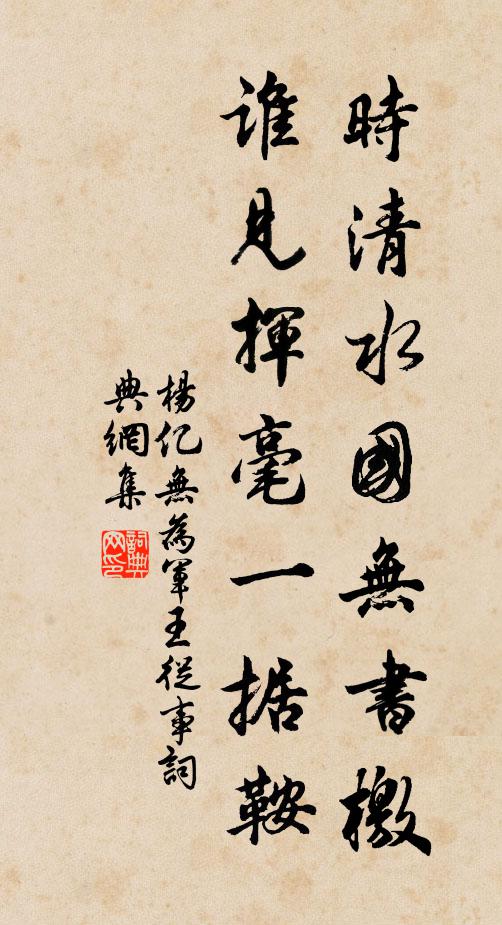 時清水國無書檄
誰見揮毫一據鞍
楊億無為軍王從事詞
典網集
詞典网印